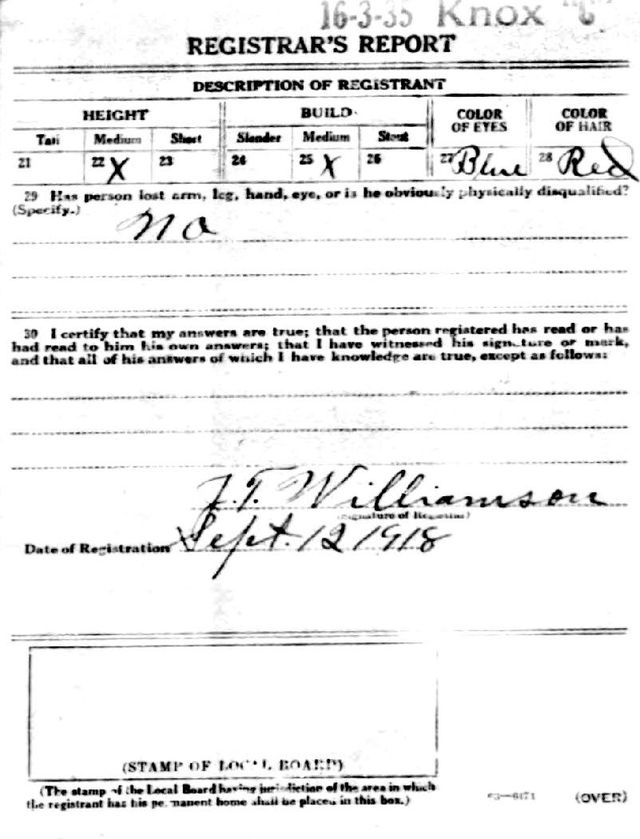 16-3-35 Knox "C"
REGISTRAR'S REPORT
DESCRIPTION OF REGISTRANT
HEIGHT BUILD COLOR OF EYES COLOR OF HAIR
Tall Medium Short Slender Medium Stout
21 22 X 23 24 25 X 26 27 Blue 28 Red
29 Has person lost arm, leg, hand, eye, or is he obviously physically disqualified?
(Specify.) No
30 I certify that my answers are true; that the person registered has read or has
had read to him his own answers; that I have witnessed his signature or mark,
and that all of his answers of which I have knowledge are true, except as follows:
J.T. Williamson
(Signature of Registrar)
Date of Registration Sept. 12 1918
(STAMP OF LOCAL BOARD)
(The stamp of the Local Board having jurisdiction of the area in which
the registrant has his permanent home shall be placed in this box.)
(OVER)